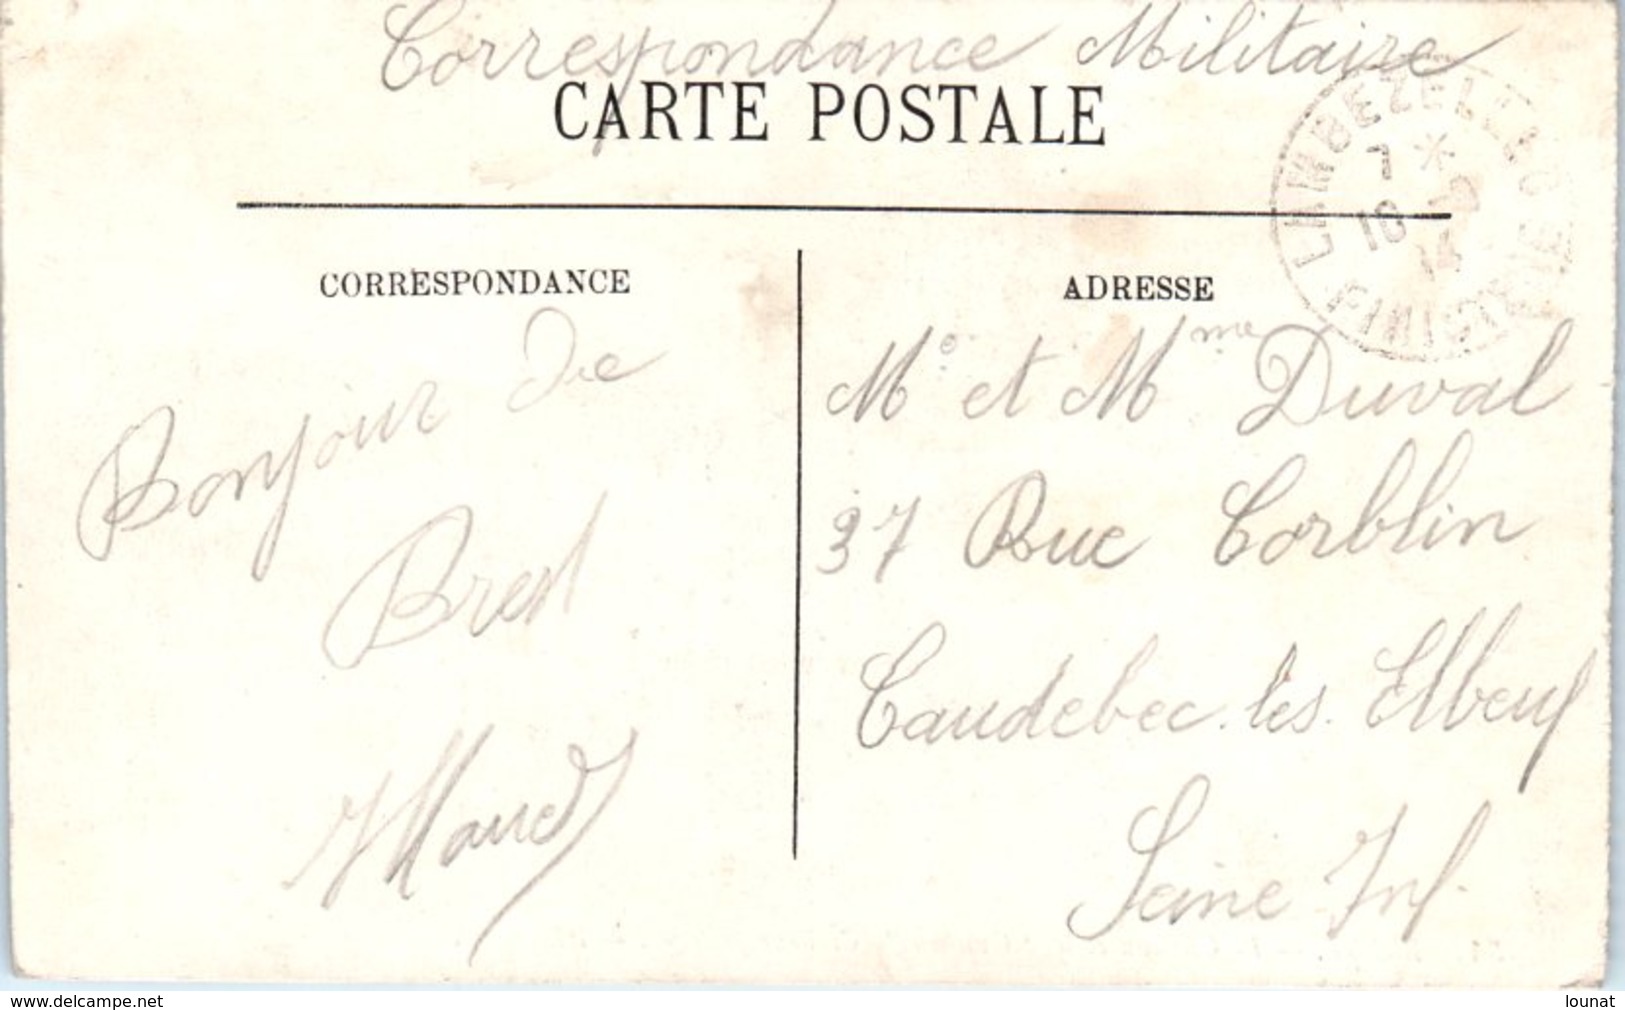 Correspondance Militaire
CARTE POSTALE
LAMBEZELLEC
7 *
16 - 9
14
FINISTERE
CORRESPONDANCE
Bonjour de
Brest
ADRESSE
Mr et Mme Duval
37 Rue Corblin
Caudebec. lès. Elbeuf
Seine Inf.
www.delcampe.net
lounat